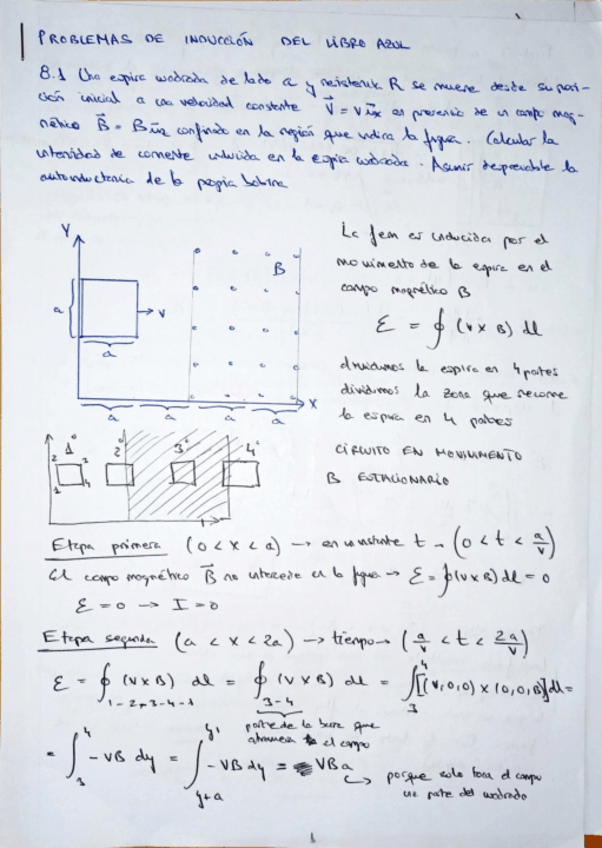 PROBLEMAS DE INDUCCIÓN DEL LIBRO AZUL
8.1 Una espira cuadrada de lado a y resistencia R se mueve desde su posi-
ción inicial a una velocidad constante V⃗ = v u⃗x en presencia de un campo mag-
nético B⃗ = B u⃗z confinado en la región que indica la figura. Calcular la
intensidad de corriente inducida en la espira cuadrada. Asumir despreciable la
autoinductancia de la propia bobina
La fem es inducida por el
movimiento de la espira en el
campo magnético B
ε = ∮ (v x B) dl
dividimos la espira en 4 partes
dividimos la zona que recorre
la espira en 4 partes
CIRCUITO EN MOVIMIENTO
B ESTACIONARIO
Y
B
a
v
a
X
a a a a
1° 2° 3° 4°
2 3
1 4
Etapa primera (0 < x < a) → en instante t → (0 < t < a/v)
El campo magnético B⃗ no intercede en la figura → ε = ∮(v x B) dl = 0
ε = 0 → I = 0
Etapa segunda (a < x < 2a) → tiempo → (a/v < t < 2a/v)
ε = ∮ 1-2-3-4-1 (v x B) dl = ∮ 3-4 (v x B) dl = ∫ 3 4 [(v,0,0) x (0,0,B)] dl =
parte de la barra que
atraviesa el campo
= ∫ 3 4 -VB dy = ∫ y+a y -VB dy = VBa
porque solo toca el campo
una parte del cuadrado
1